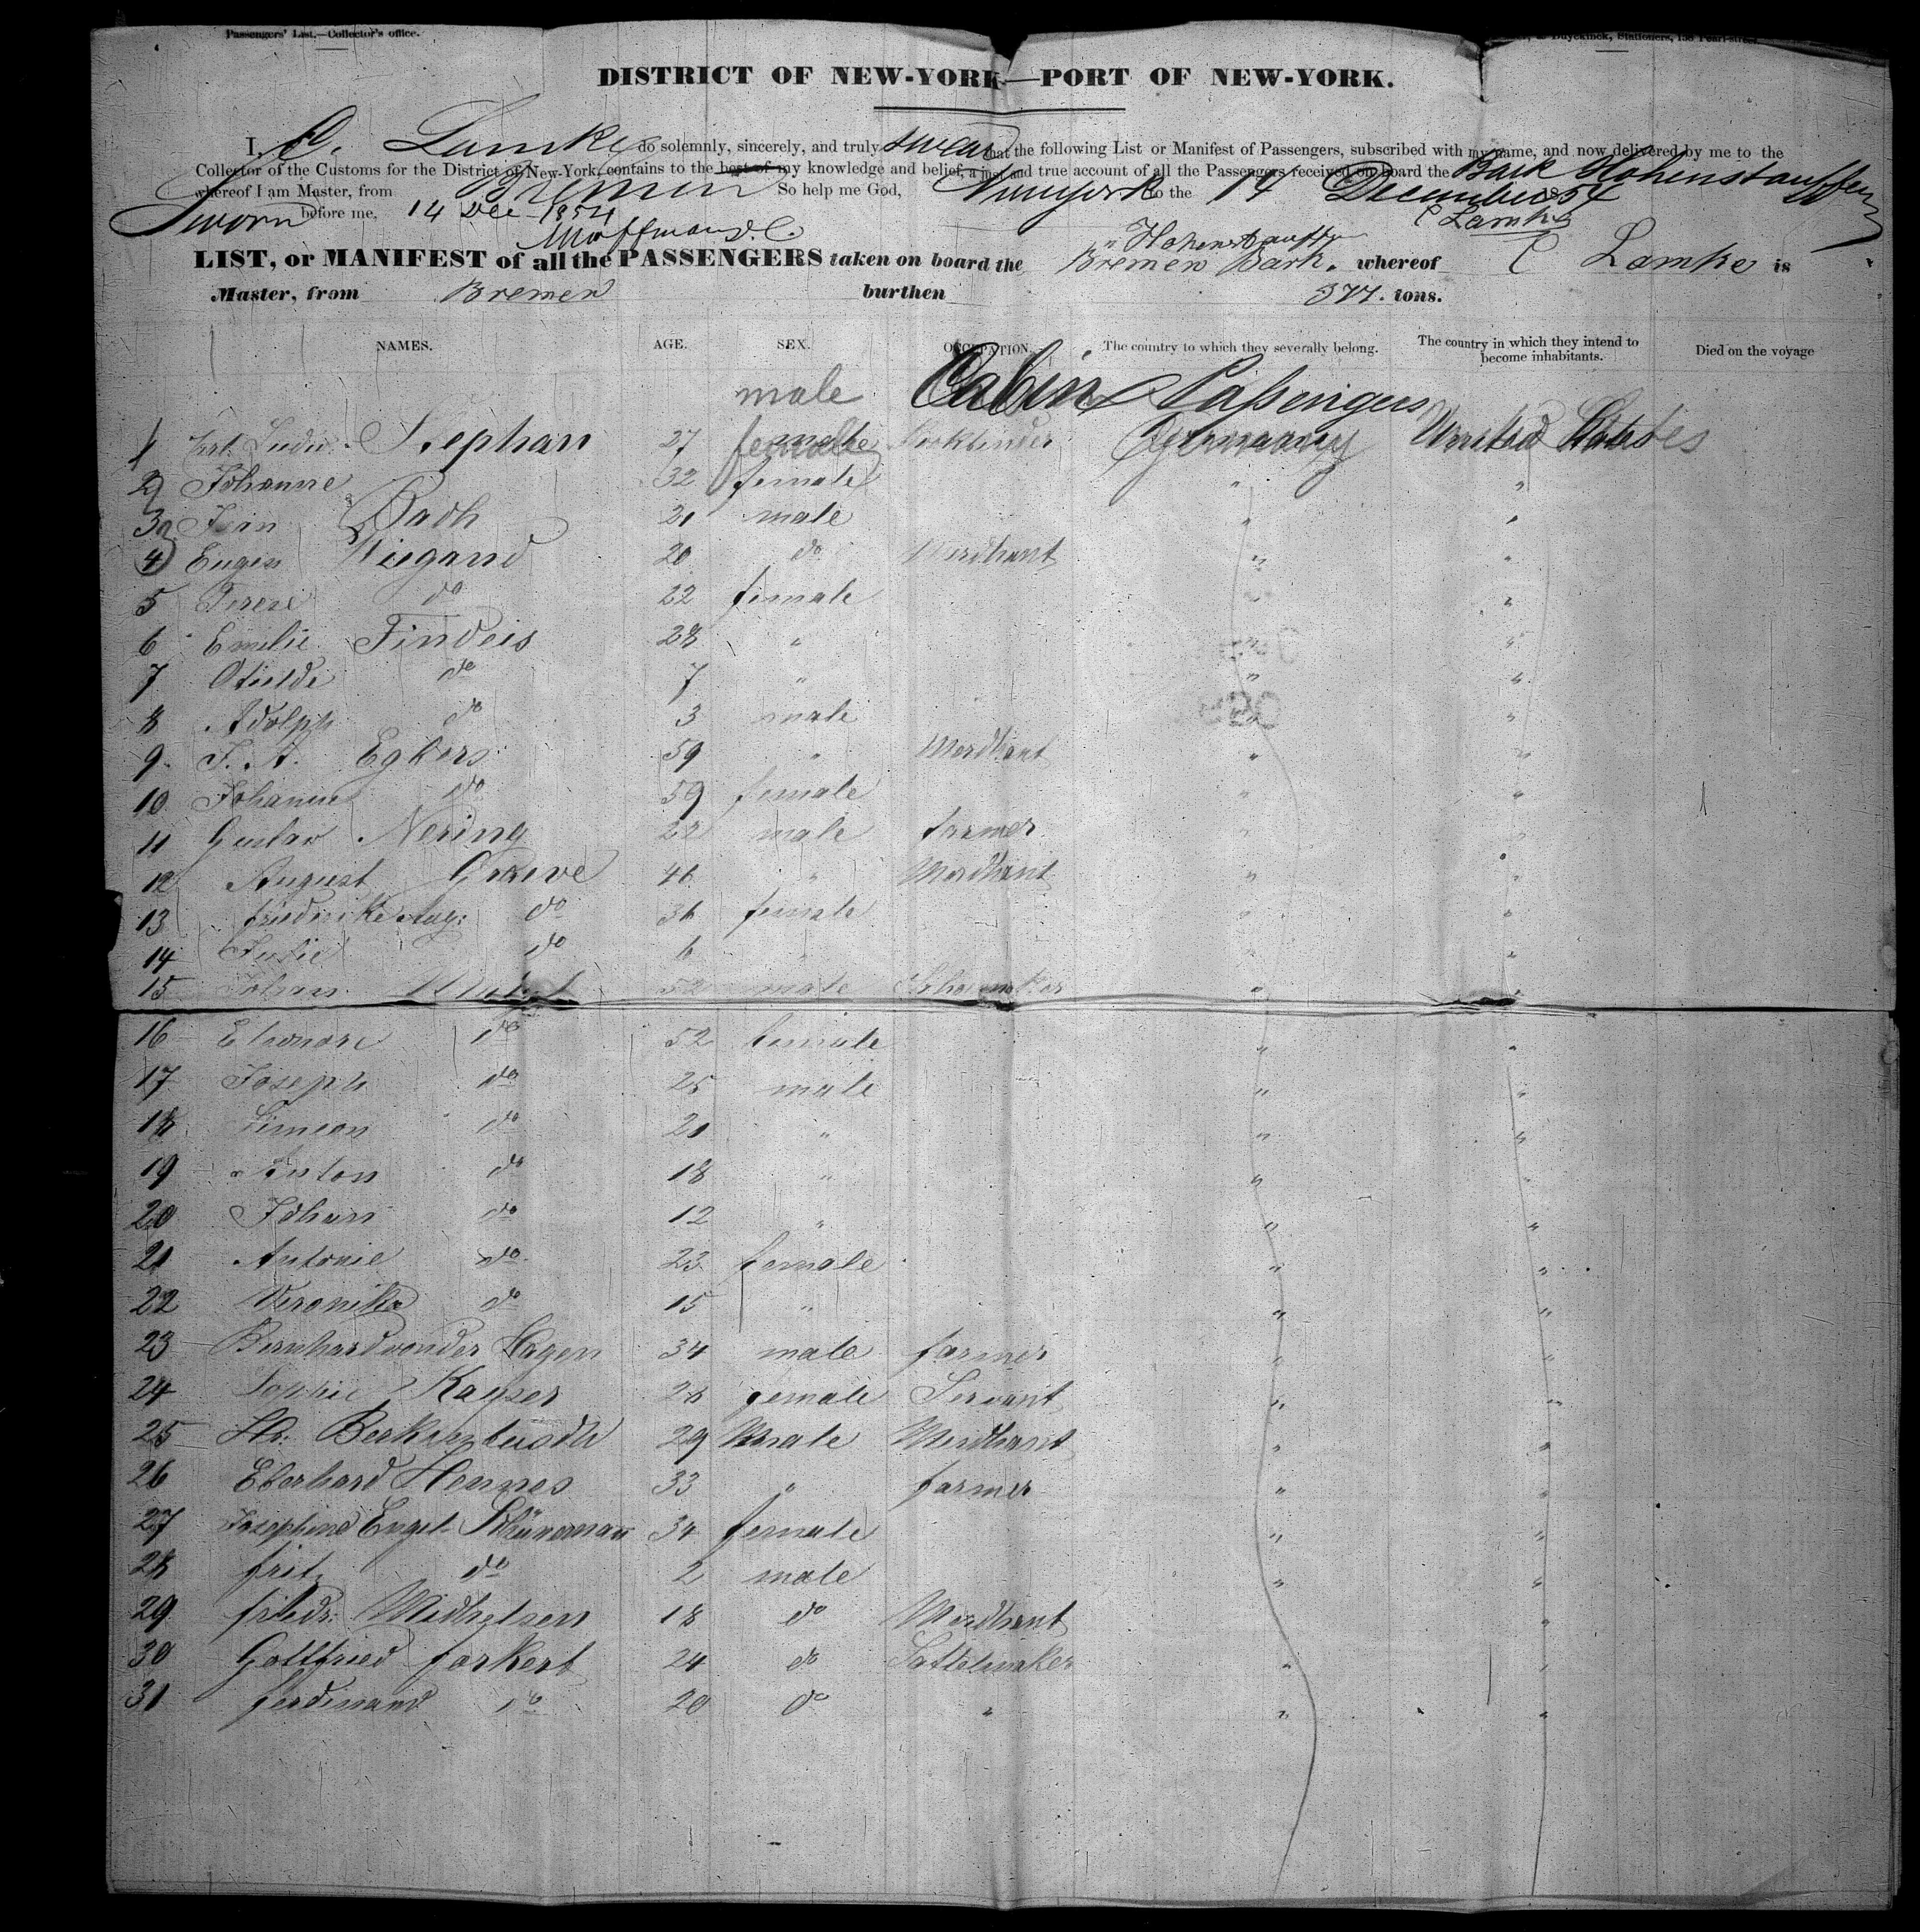 Passengers' List.—Collector's office.
Duyckinck, Stationers, 158 Pearl-street
DISTRICT OF NEW-YORK—PORT OF NEW-YORK.
I, C. Lamke do solemnly, sincerely, and truly swear that the following List or Manifest of Passengers, subscribed with my name, and now delivered by me to the
Collector of the Customs for the District of New-York, contains to the best of my knowledge and belief, a just and true account of all the Passengers received on board the Bark Hohenstauffen
whereof I am Master, from Bremen So help me God, Newyork to the 14 December 1854
Sworn before me, 14 Dec 1854 C Lamke
LIST, or MANIFEST of all the PASSENGERS taken on board the Bremen Bark. "Hohenstauffen whereof C Lamke is
Master, from Bremen burthen 377. tons.
NAMES. AGE. SEX. OCCUPATION. The country to which they severally belong. The country in which they intend to become inhabitants. Died on the voyage
male Cabin Passengers
1 Stephan 27 Germany United States
2 Johanne 32 female " "
3 Bach 21 male " "
4 Eugen Wiegand 20 do Merchant " "
5 do 22 female " "
6 Emilie Findeis 28 " " "
7 do 7 " " "
8 Adolph do 3 male " "
9 Egbers 59 " Merchant " "
10 Johanne do 59 female " "
11 Gustav Nering 22 male farmer " "
12 August Graeve 46 " Merchant " "
13 friederike Aug: do 36 female " "
14 Julie do 6 " "
15 Johan 52 male " "
16 Eleonore do 52 female " "
17 Joseph do 25 male " "
18 Simeon do 21 " " "
19 Anton do 18 " " "
20 Johan do 12 " " "
21 Antonie do 23 female " "
22 Veronika do 15 " " "
23 Bernhard von der Hagen 34 male farmer " "
24 Sophie Kayser 28 female Servant " "
25 Hr. Berkenbusch 29 Male Merchant " "
26 Eberhard Hennes 33 " farmer " "
27 Josephine Engel Schüneman 34 female " "
28 fritz do 2 male " "
29 friedr. Michelsen 18 do Merchant " "
30 Gottfried forkert 24 do Sattelmaker " "
31 ferdinand do 20 do " " "